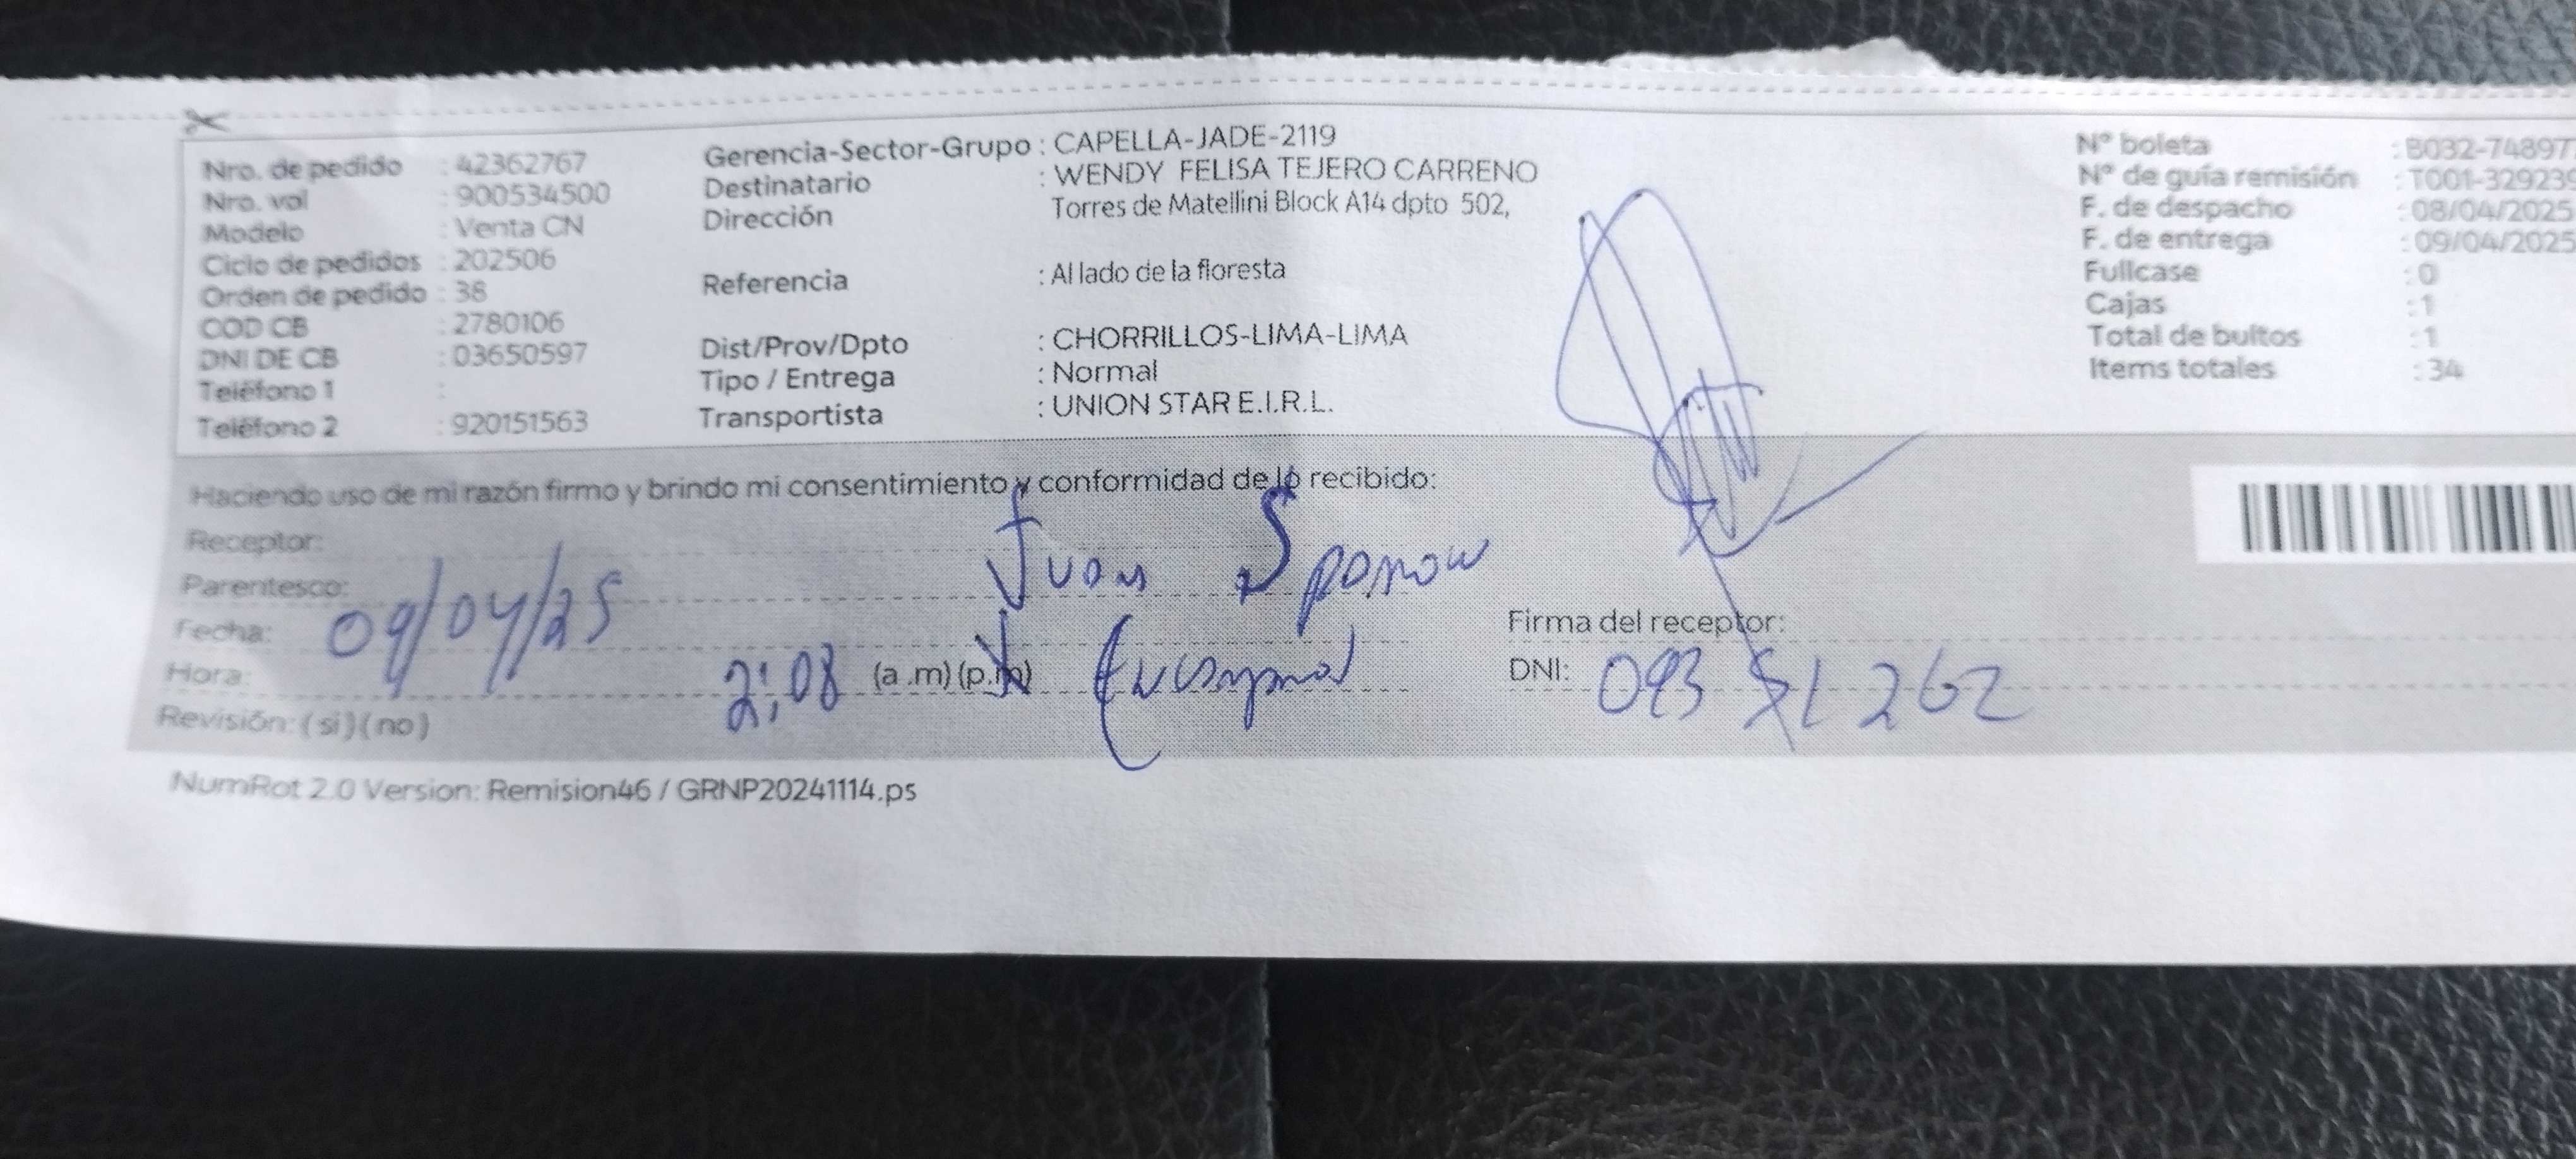 Nro. de pedido : 42362767
Nro. val : 900534500
Modelo : Venta CN
Ciclo de pedidos : 202506
Orden de pedido : 38
COD CB : 2780106
DNI DE CB : 03650597
Teléfono 1 :
Teléfono 2 : 920151563
Gerencia-Sector-Grupo : CAPELLA-JADE-2119
Destinatario : WENDY FELISA TEJERO CARRENO
Dirección Torres de Matellini Block A14 dpto 502,
Referencia : Al lado de la floresta
Dist/Prov/Dpto : CHORRILLOS-LIMA-LIMA
Tipo / Entrega : Normal
Transportista : UNION STAR E.I.R.L.
N° boleta : B032-74897
N° de guía remisión : T001-32923
F. de despacho : 08/04/2025
F. de entrega : 09/04/2025
Fullcase : 0
Cajas : 1
Total de bultos : 1
Items totales : 34
Haciendo uso de mi razón firmo y brindo mi consentimiento y conformidad de lo recibido:
Receptor: Juan
Parentesco:
Fecha: 09/04/25
Hora: 2:08 (a .m) (p.m)
Revisión: ( si ) ( no )
Firma del receptor:
DNI:
NumRot 2.0 Version: Remision46 / GRNP20241114.ps